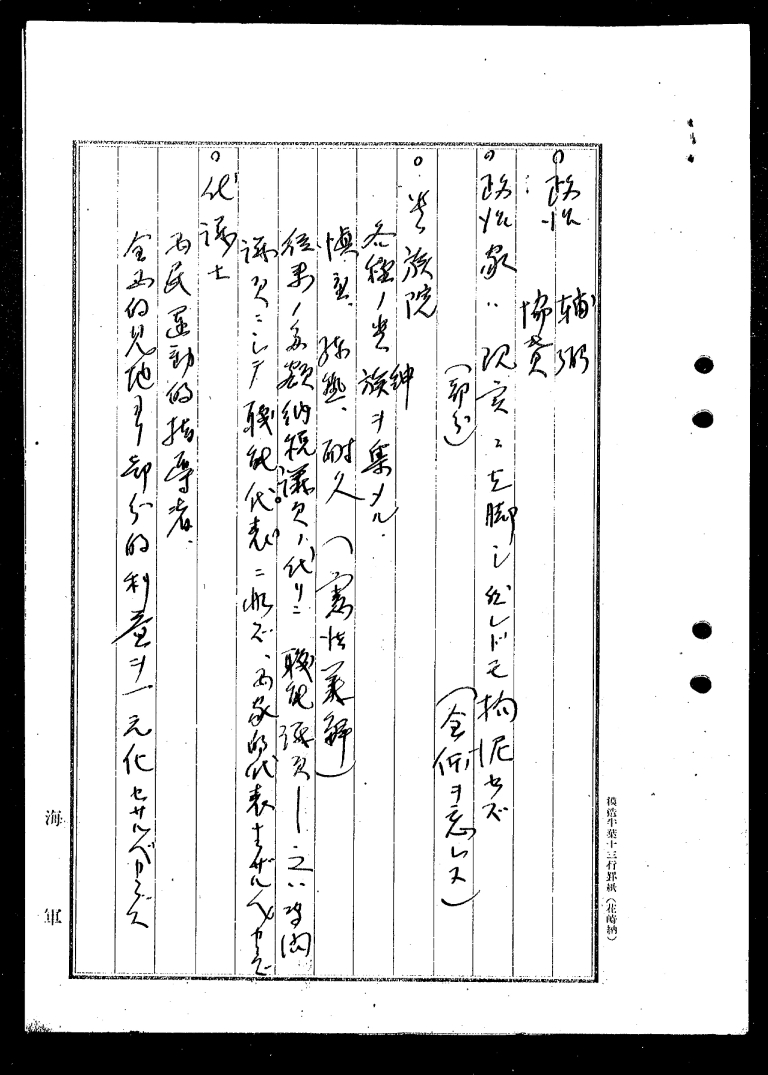 。政治 輔弼
協賛
。政治家ハ現実ニ立脚シ然レドモ拘泥セズ
(部分) (全体ヲ忘レズ)
。貴族院
各種ノ貴族紳ヲ集メル.
慎重、練熟、耐久 (憲法義解)
従来ノ多額納税議員ノ代リニ 職能議員
議員ニシテ職能代表ニ非ズ、国家的代表ナラザルベカラズ
。代議士
国民運動的指導者.
全国的見地ヨリ部分的利益ヲ一元化セザルベカラズ
海軍
模造半葉十三行罫紙 (花崎納)